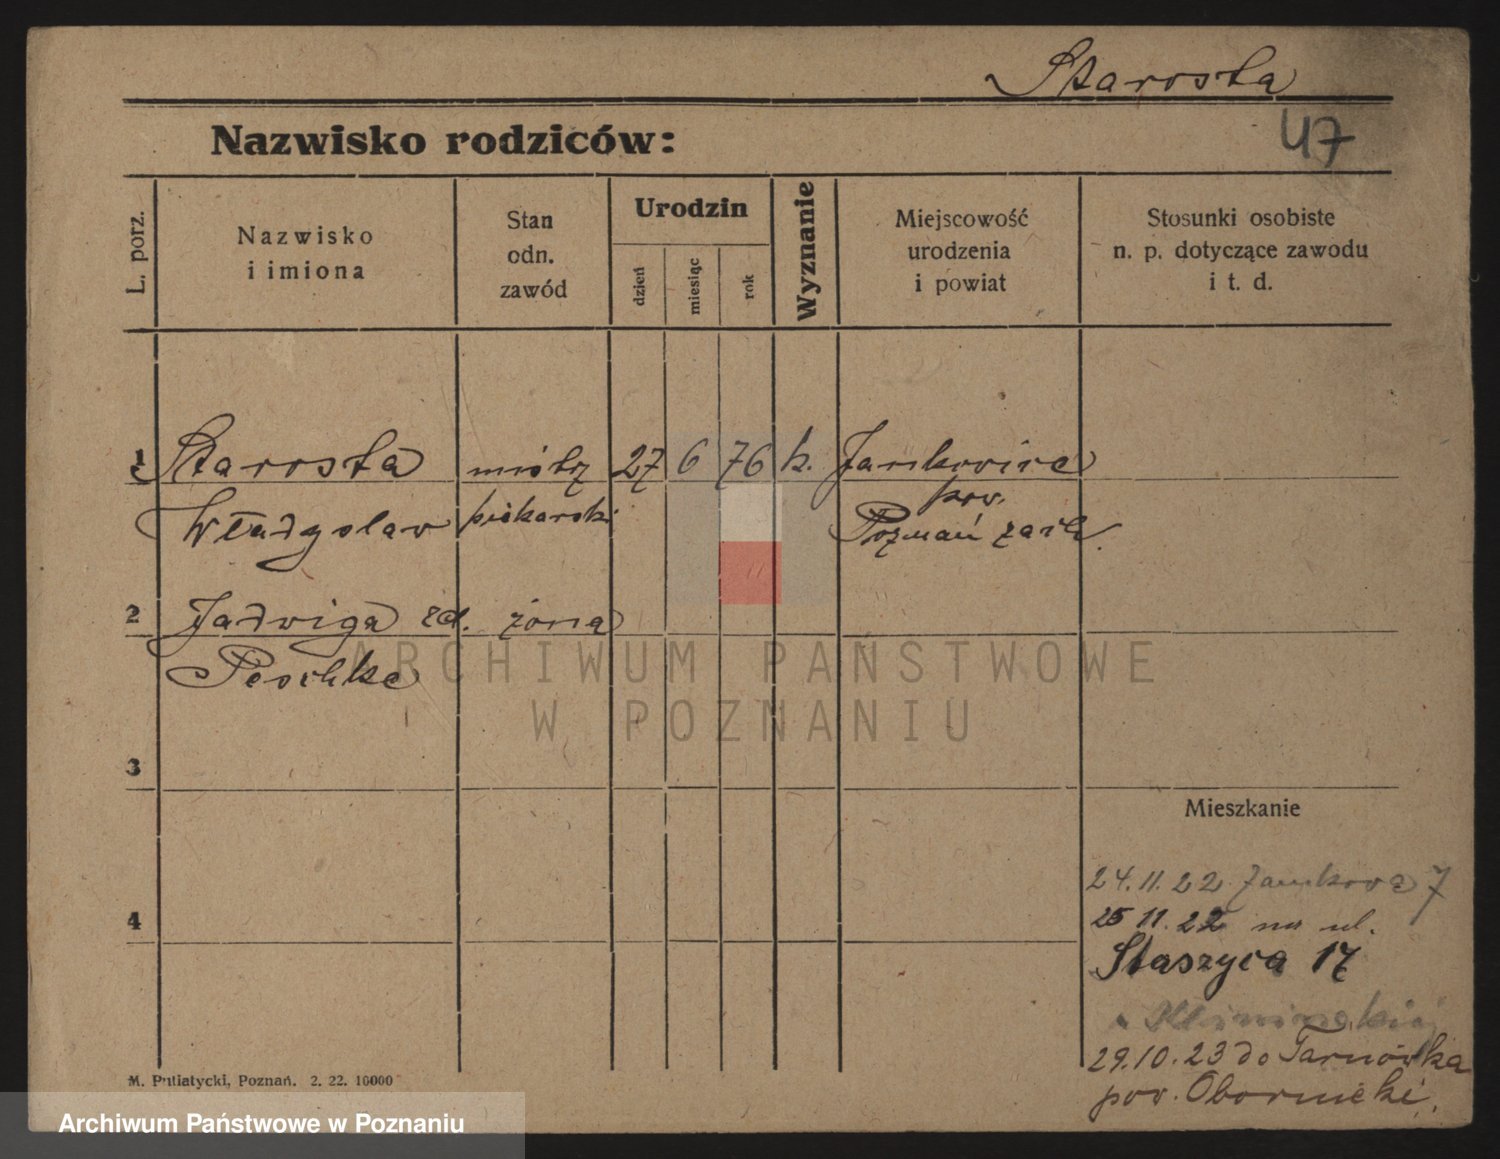 Starosta
Nazwisko rodziców:
47
L. porz.
Nazwisko
i imiona
Stan
odn.
zawód
Urodzin
dzień
miesiąc
rok
Wyznanie
Miejscowość
urodzenia
i powiat
Stosunki osobiste
n. p. dotyczące zawodu
i t. d.
1 Starosta mistrz 27 6 76 k. Jankowice
Władysław piekarski pow.
Poznań zach.
2 Jadwiga zd. żona
Peschke
3
4
Mieszkanie
24.11.22 Zamkowa 7
25 11.22 na ul.
Staszyca 17
29.10.23 do Tarnówka
pow. Obornicki.
M. Putiatycki, Poznań. 2. 22. 10000
ARCHIWUM PAŃSTWOWE
W POZNANIU
Archiwum Państwowe w Poznaniu